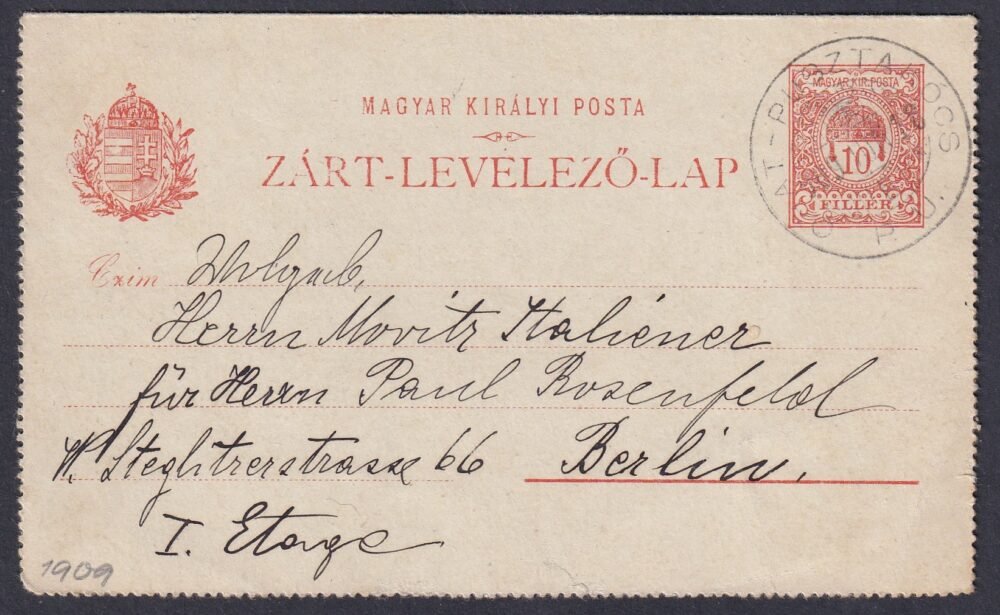 MAGYAR KIRÁLYI POSTA
ZÁRT-LEVELEZŐ-LAP
MAGYAR KIR. POSTA
10
FILLER
Czim Wolgeb.
Herrn Moritz Italiener
für Herrn Paul Rosenfeld
W. Steglitzerstrasse 66 Berlin,
I. Etage
1909